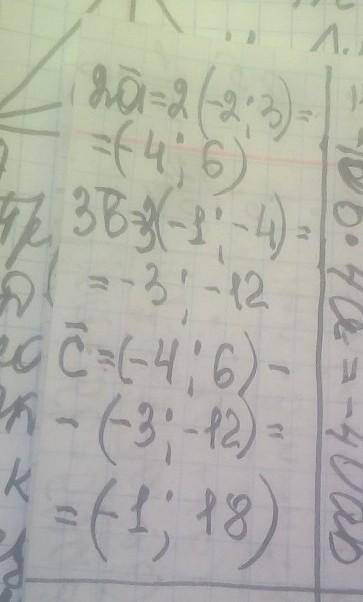 2ā=2(-2;3)=
=(-4;6)
3b̄=3(-1;-4)=
=-3;-12
c̄=(-4;6)-
-(-3;-12)=
=(-1;18)